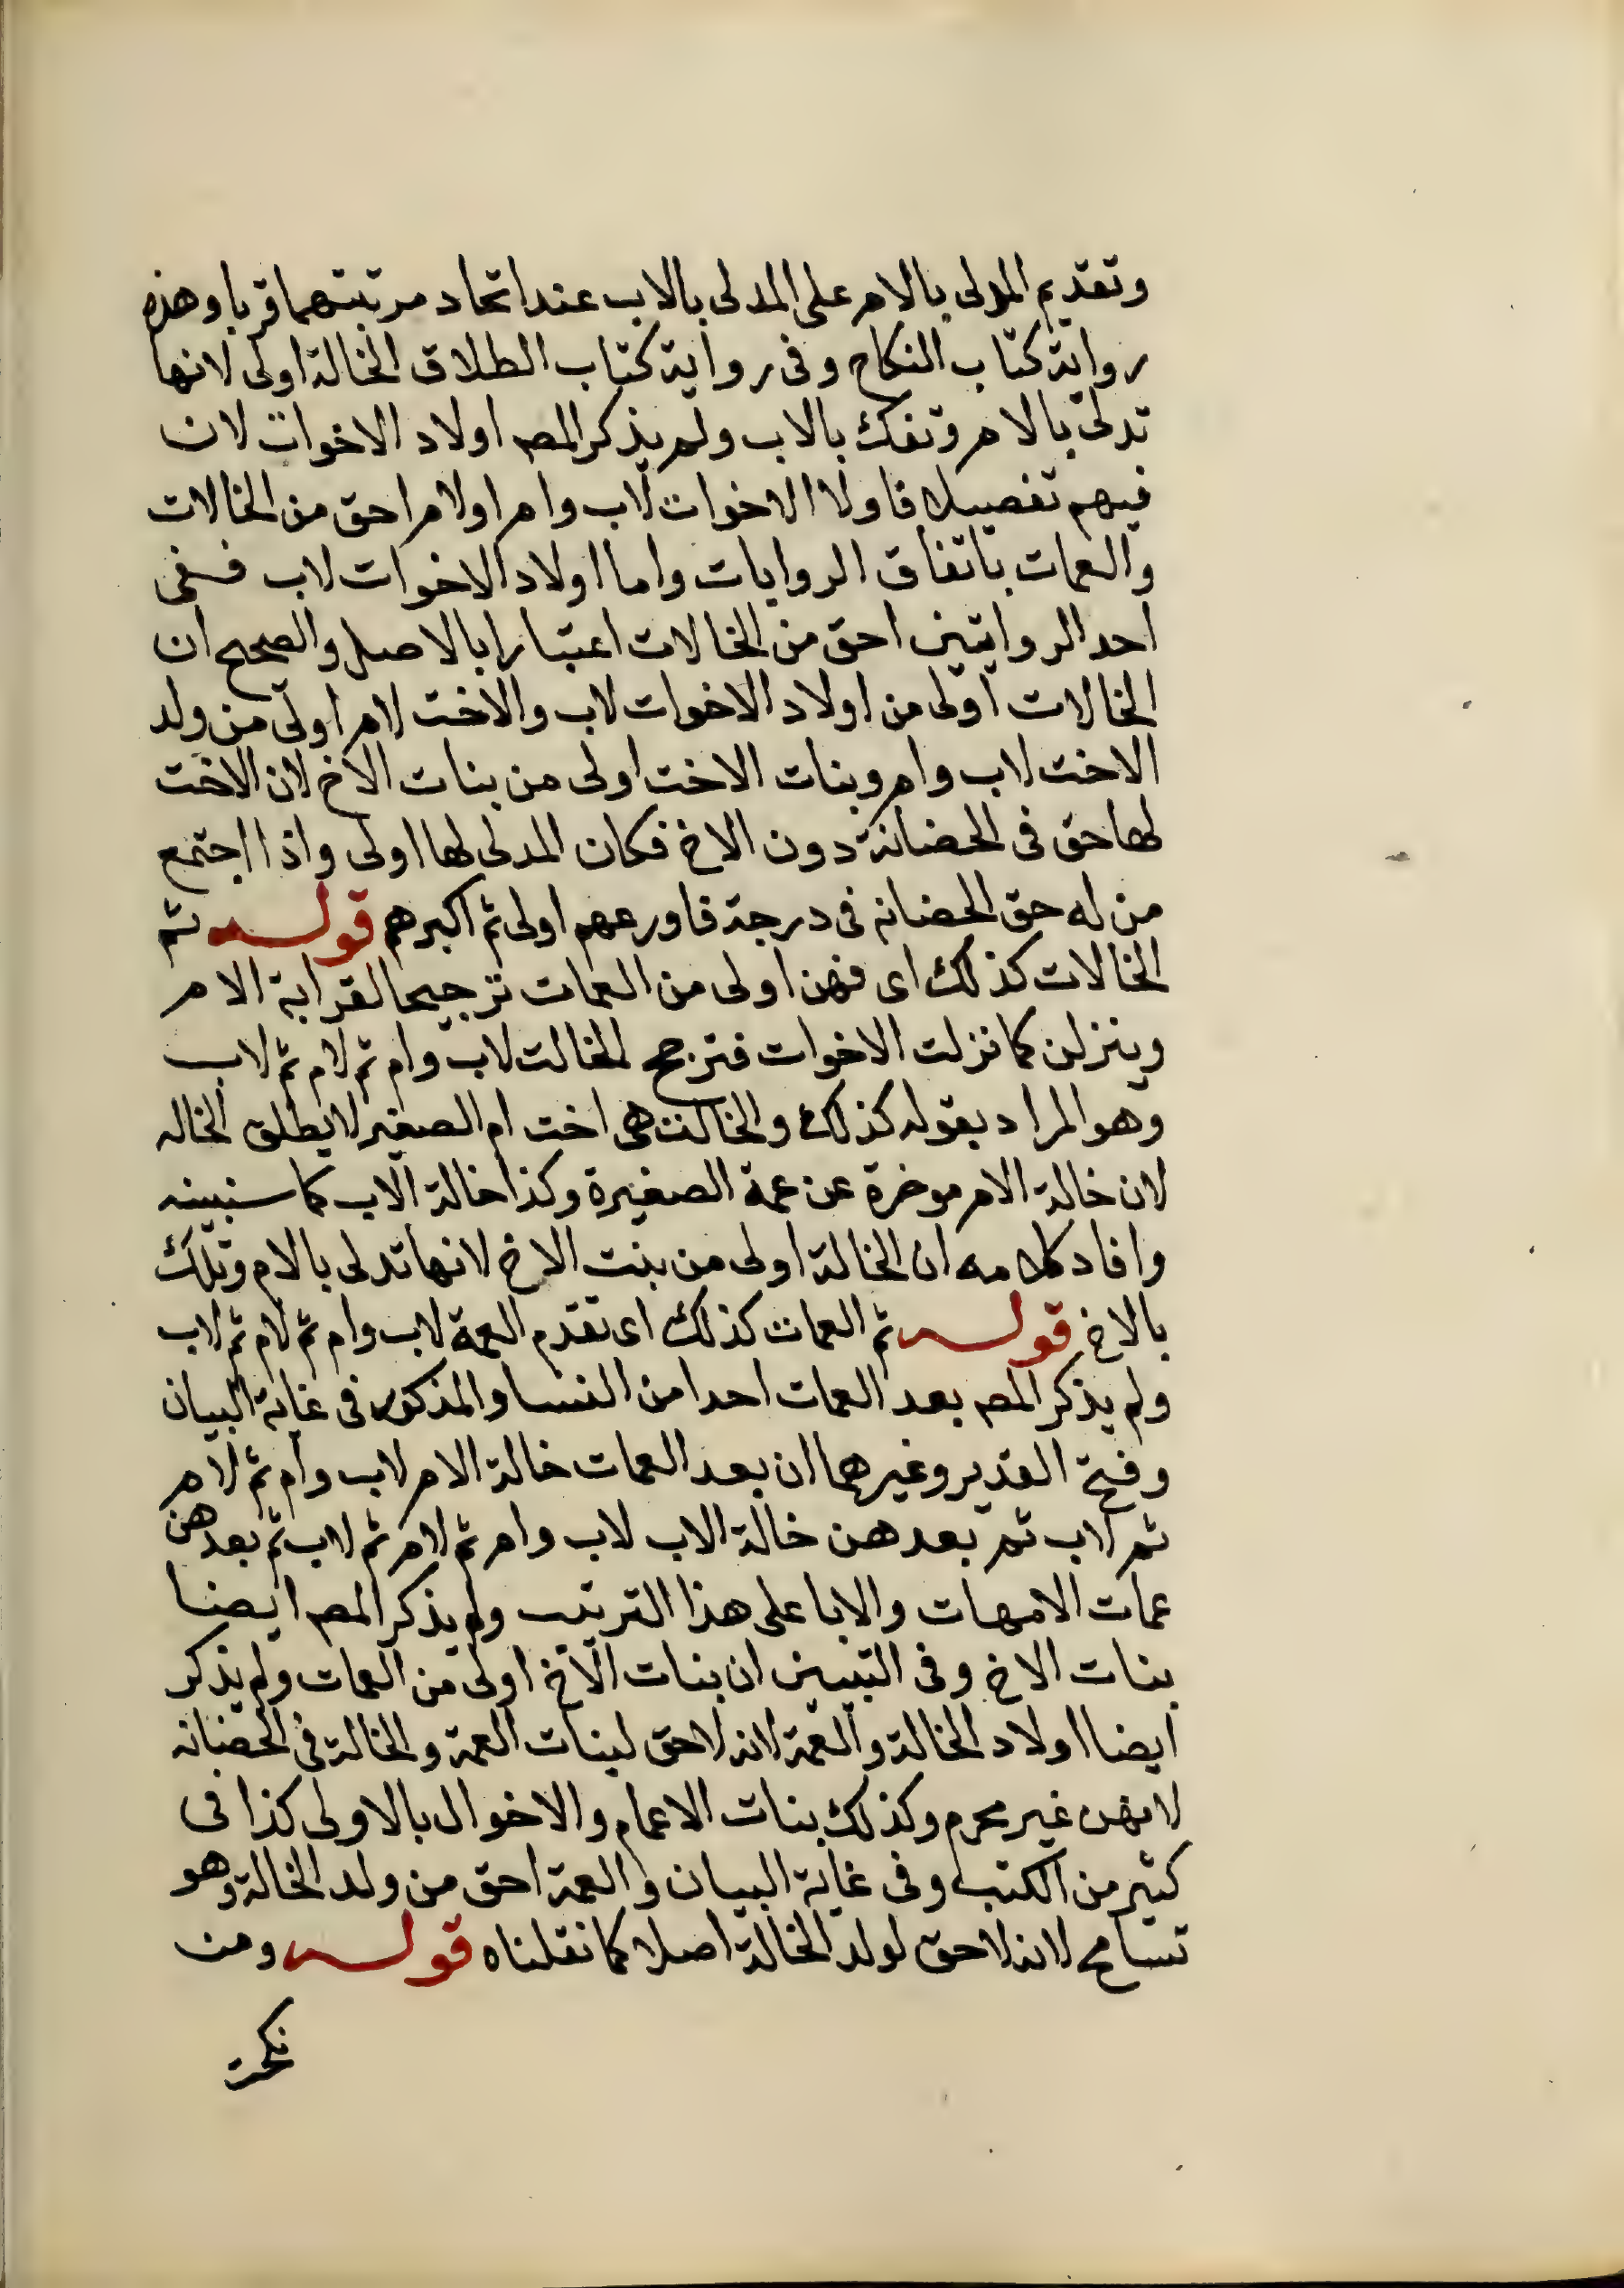 وتقديم المدلى بالام على المدلى بالاب عند اتحاد مرتبتهما قربا وهذه
رواية كتاب النكاح وفى رواية كتاب الطلاق الخالة اولى لانها
تدلى بالام وتفك بالاب ولم يذكر المص اولاد الاخوات لان
فيهم تفصيلا فاولاا الاخوات لاب وام او لام احق من الخالات
والعمات باتفاق الروايات واما اولاد الاخوات لاب ففى
احد الروايتين احق من الخالات اعتبارا بالاصل والصحيح ان
الخالات اولى من اولاد الاخوات لاب والاخت لام اولى من ولد
الاخت لاب وام وبنات الاخت اولى من بنات الاخ لان الاخت
لها حق فى الحضانة دون الاخ فكان المدلى لها اولى واذا اجتمع
من له حق الحضانه فى درجة فاورعهم اولى ثم اكبرهم قوله ثم
الخالات كذلك اى فهن اولى من العمات ترجيحا لقرابة الام
وينزلن كما نزلت الاخوات فترجح الخالت لاب وام ثم لام ثم لاب
وهو المراد بقوله كذلك والخالت هى اخت ام الصغير لا يطلق الخاله
لان خالة الام موخرة عن عمة الصغيرة وكذا خالة الاب كما سنبينه
وافاد كلامه ان الخالة اولى من بنت الاخ لانها تدلى بالام وتلك
بالاخ قوله ثم العمات كذلك اى تقدم العمة لاب وام ثم لام ثم لاب
ولم يذكر المص بعد العمات احدا من النسا والمذكور فى غاية البيان
وفتح القدير وغيرهما ان بعد العمات خالة الام لاب وام ثم لام
ثم لاب ثم بعدهن خالة الاب لاب وام ثم لام ثم لاب ثم بعدهن
عمات الامهات والابا على هذا الترتيب ولم يذكر المص ايضا
بنات الاخ وفى التبيين ان بنات الاخ اولى من العمات ولم يذكر
ايضا اولاد الخالة والعمة لانه لا حق لبنات العمة والخالة فى الحضانه
لانهن غير محرم وكذلك بنات الاعمام والاخوال بالاولى كذا فى
كثير من الكتب وفى غاية البيان والعمة احق من ولد الخالة وهو
تسامح لانه لا حق لولد الخالة اصلا كما نقلناه قوله ومن
نكحت